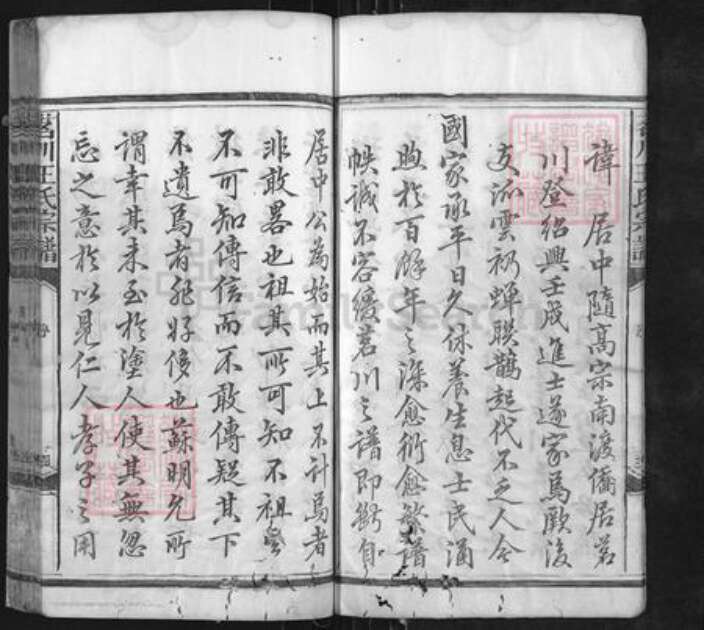 諱 居中隨高宗南渡僑居茗
川登紹興壬戌進士遂家焉厥後
支派雲礽蟬聯鵲起代不乏人今
國家承平日久休養生息士民涵
煦於百餘年之深愈衍愈繁譜
帙誠不容緩茗川之譜即斷自
居中公為始而其上不計焉者
非敢畧也祖其所可知不祖其
不可知傳信而不敢傳疑其下
不遺焉者非好侈也蘇明允所
謂幸其未至於塗人使其無忽
忘之意於以見仁人孝子之用
茗川王氏宗譜